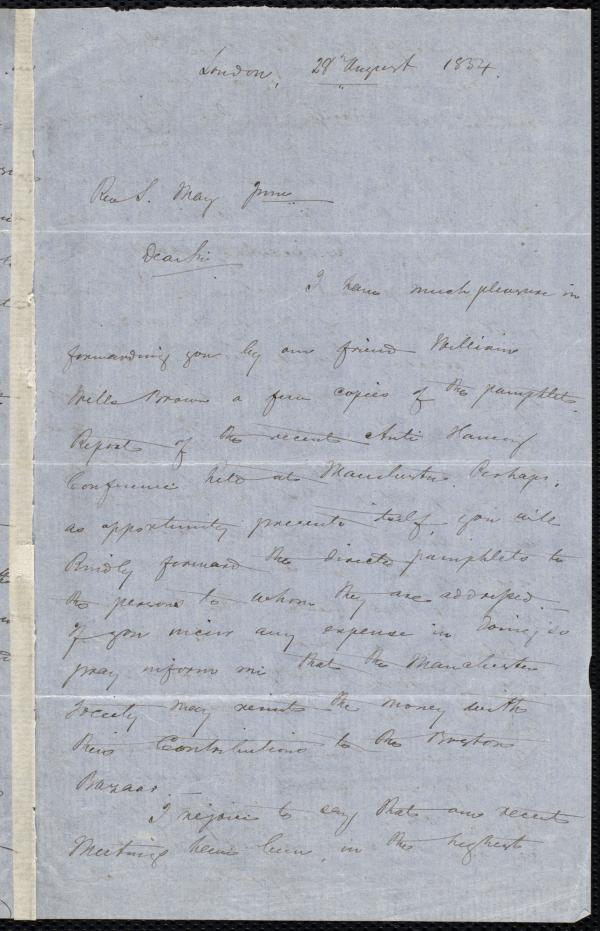 London, 28th August 1854.
Rev S. May Junr.
Dear Sir
I have much pleasure in
forwarding you by our friend William
Wells Brown a few copies of the pamphlet
Report of the recent Anti Slavery
Conference held at Manchester. Perhaps,
as opportunity presents itself, you will
kindly forward the directed pamphlets to
the persons to whom they are addressed.
If you incur any expense in doing so
pray inform me that the Manchester
Society may remit the money with
their Contributions to the Boston
Bazaar.
I rejoice to say that our recent
Meetings have been, in the highest